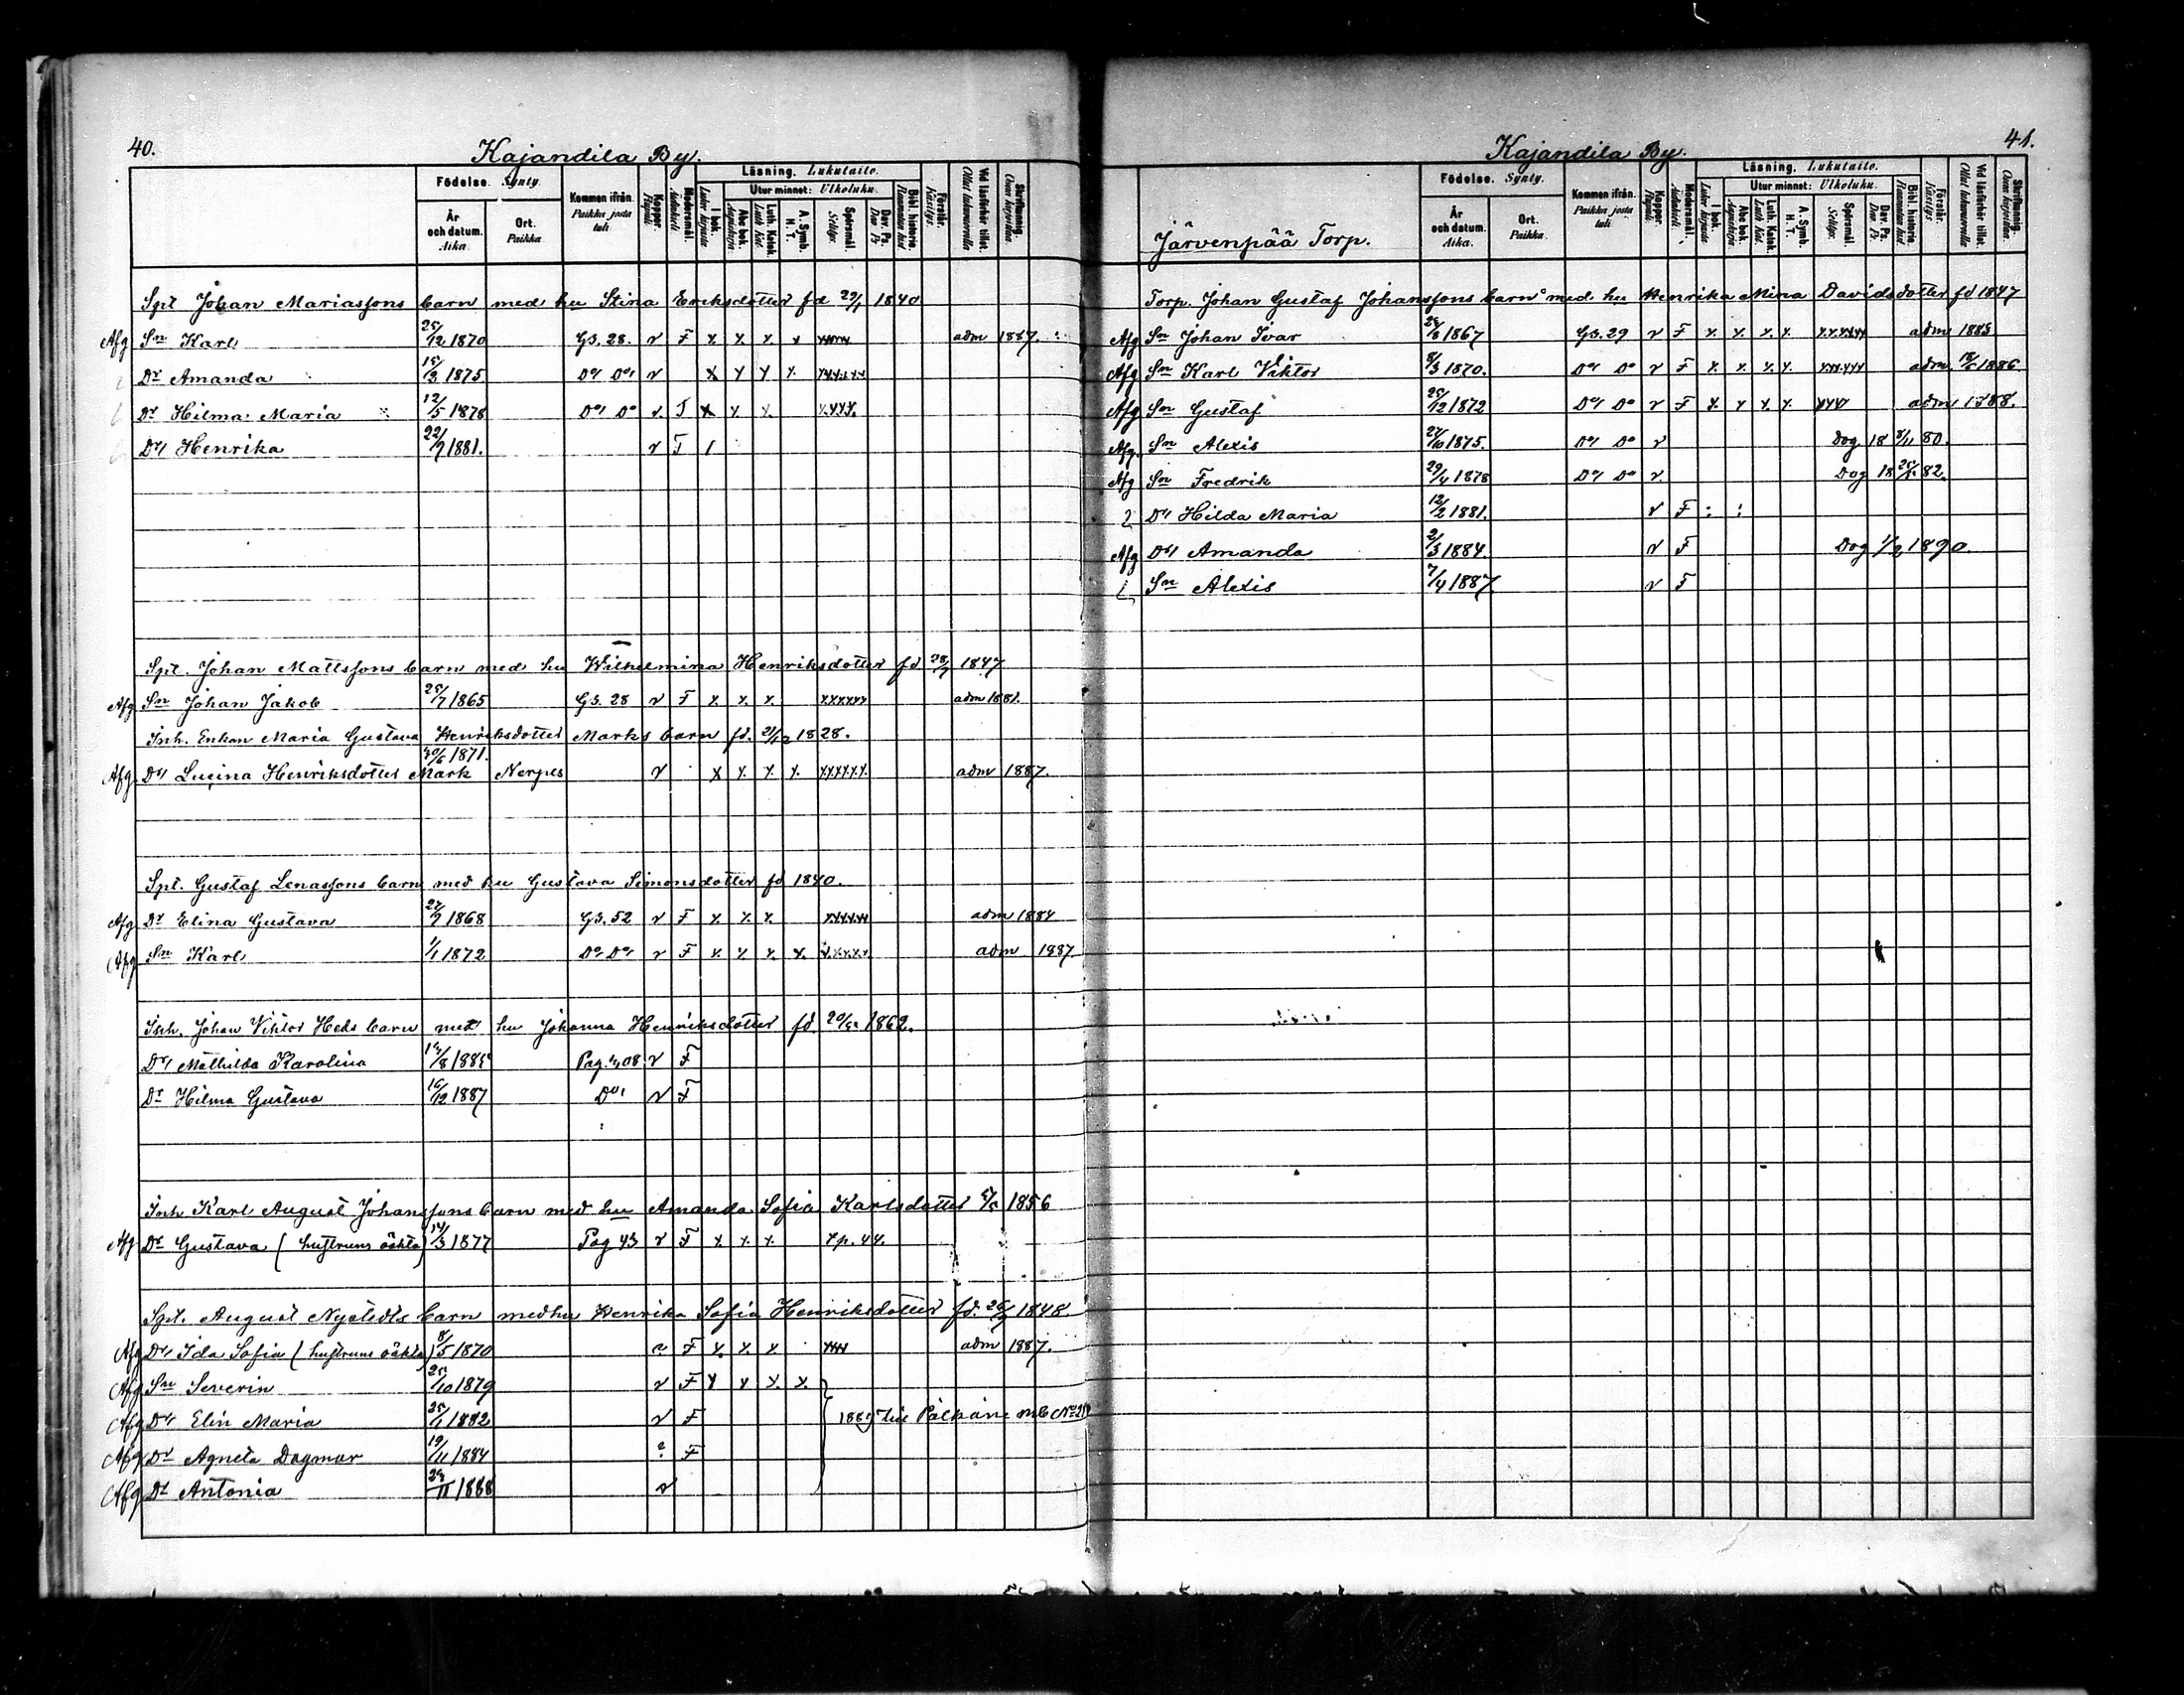 40.
Kajandila By.
Födelse. Synty.
År och datum. Aika.
Ort. Paikka.
Kommen ifrån. Paikka josta tuli
Koppor.
Modersmål.
Läsning. Lukutaito.
I bok.
Utur minnet: Ulkoluku.
Abc bok.
Luth. Katek.
A. Symb. H. T.
Spörsmål.
Dav. Ps.
Bibl. historia
Förstår.
Vid läsförhör tillst.
Skriftkunnig.
Spt Johan Mariassons barn med hu Stina Eriksdotter fd 29/1 1840
Afg Sn Karl 25/12 1870 G3. 28. v F x x x x adm 1887.
Dr Amanda 15/3 1875 Do Do v x x x x
Dr Hilma Maria 12/5 1878 Do Do v. F x x x
Dr Henrika 22/7 1881. v F
Spt. Johan Mattssons barn med hu Wilhelmina Henriksdotter fd 28/7 1847
Afg Sn Johan Jakob 25/7 1865 G3. 28 v F x x x xxxxxx adm 1881.
Inh. Enkan Maria Gustava Henriksdotter Marks barn fd. 21/12 1828.
Afg Dr Lucina Henriksdotter Mark 30/6 1871. Nerpes v x x x x xxxxxx adm 1887.
Spt. Gustaf Lenassons barn med hu Gustava Simonsdotter fd 1840.
Afg Dr Elina Gustava 1868 G3. 52 v F x x x adm 1884
Afg Sn Karl 1/1 1872 Do Do v F x x x x adm 1887.
Inh. Johan Viktor Heds barn med hu Johanna Henriksdotter fd. 1862.
Dr Mathilda Karolina Pag. 408 v F
Dr Hilma Gustava 16/12 1887 Do v F
Inh Karl August Johanssons barn med hu Amanda Sofia Karlsdotter 1856
Afg Dr Gustava (hustruns oäkta) 14/3 1877 Pag 43 v F x x x x p. 44.
Spt. August Nystedts barn med hu Henrika Sofia Henriksdotter fd. 1848.
Afg Dr Ida Sofia (hustruns oäkta) 8/5 1870 F x x x xxxx adm 1887.
Afg Sn Severin 25/10 1879 v F x x x x
Afg Dr Elin Maria 25/1 1882 v F till Pälkäne mb No 21
Afg Dr Agneta Dagmar 19/11 1884 ? F
Afg Dr Antonia v
41.
Kajandila By.
Järvenpää Torp.
Födelse. Synty.
År och datum. Aika.
Ort. Paikka.
Kommen ifrån. Paikka josta tuli
Koppor.
Modersmål.
Läsning. Lukutaito.
I bok.
Utur minnet: Ulkoluku.
Abc bok.
Luth. Katek.
A. Symb. H. T.
Spörsmål.
Dav. Ps.
Bibl. historia
Förstår.
Vid läsförhör tillst.
Skriftkunnig.
Torp. Johan Gustaf Johanssons barn med hu Henrika Mina Davidsdotter fd 1847
Afg Sn Johan Ivar 1867 G3. 29 v F x x x x xxxxxx adm 1885
Afg Sn Karl Viktor 8/3 1870. Do Do v F x x x x xxxxxx adm. 1886
Afg Sn Gustaf 25/12 1872 Do Do v F x x x x xxxx adm 1888.
Afg. Sn Alexis 1875. Do Do v Dog 18 8/11 80.
Afg Sn Fredrik 29/4 1878 Do Do v Dog 18 82.
Dr Hilda Maria 12/2 1881. v F
Afg Dr Amanda 2/3 1884. v F Dog 1/2 1890.
Sn Alexis 7/4 1887 v F